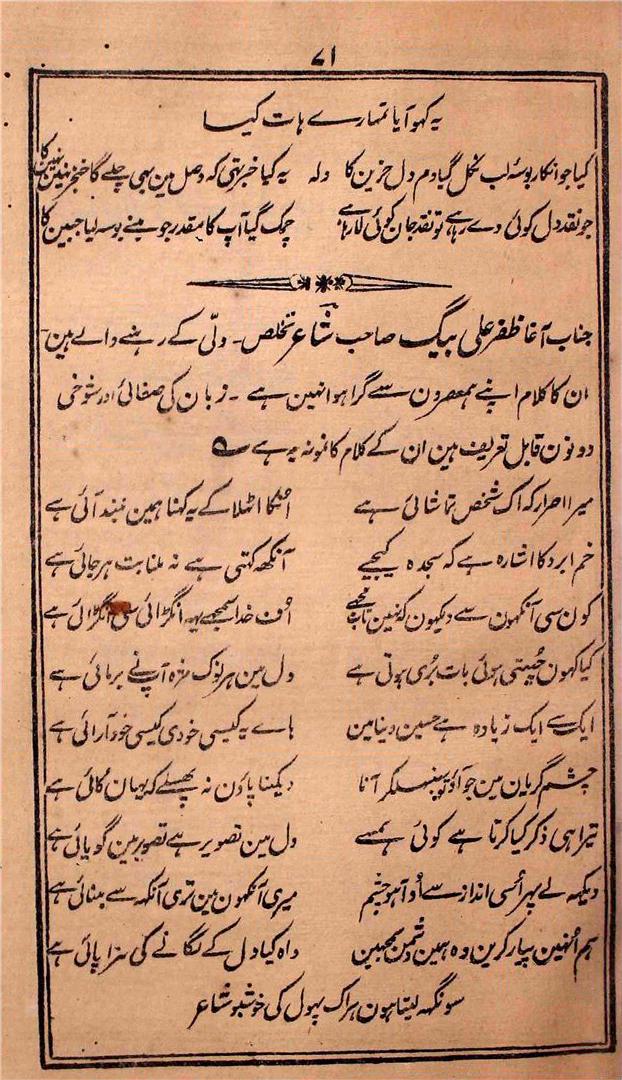 ۷۱
یہ کہو آیا تمہارے ہات کیسا
کیا جو انکار بوسۂ لب نکل گیا دم دل حزین کا ولہ یہ کیا خبر تہی کہ وصل مین بہی چلے گا خنجر نہین نہین کا
جو نقد دل کوئی دے رہا ہے تو نقد جان کوئی لا رہا ہے چمک گیا آپ کا مقدر جو مینے بوسہ لیا جبین کا
جناب آغا ظفر علی بیگ صاحب شاعر تخلص۔ دلّی کے رہنے والے ہین۔
ان کا کلام اپنے ہمعصرون سے گرا ہوا نہین ہے ۔ زبان کی صفائی اور شوخی
دونون قابل تعریف ہین ان کے کلام کا نمونہ یہ ہے
میرا اصرار کہ اک شخص تماشائی ہے اُنکا اٹھلا کے یہ کہنا ہمین نیند آئی ہے
خم ابرو کا اشارہ ہے کہ سجدہ کیجیے آنکھ کہتی ہے نہ ملنا بت ہرجائی ہے
کون سی آنکہون سے دیکہون کہ نہین تاب مجھے اُف خدا سمجھے یہ انگڑائی سی انگڑائی ہے
کیا کہون چُبہتی ہوئی بات بُری ہوتی ہے دل مین ہر نوک مژہ آپ نے برمائی ہے
ایک سے ایک زیادہ ہے حسین دنیا مین ہاے یہ کیسی خودی کیسی خود آرائی ہے
چشم گریان مین جو آؤ تو سنبہلکر آنا دیکہنا پاؤن نہ پھسلے کہ یہان کائی ہے
تیرا ہی ذکر کیا کرتا ہے کوئی ہمسے دل مین تصویر ہے تصویر مین گویائی ہے
دیکہہ لے پہر اُسی انداز سے او آہو چشم میری آنکہون مین تری آنکہہ سے بینائی ہے
ہم اُنہین پیار کرین وہ ہمین دشمن سمجہین واہ کیا دل کے لگانے کی سزا پائی ہے
سونگہہ لیتا ہون ہر اک پہول کی خوشبو شاعر